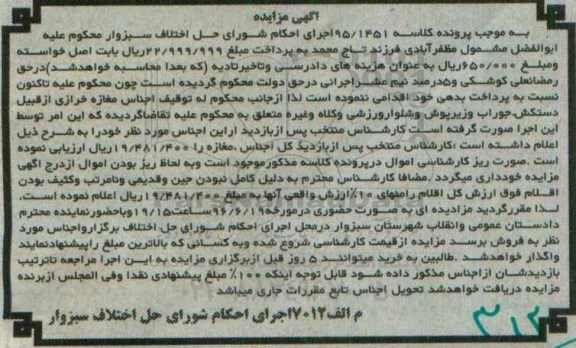 آگهی مزایده
به موجب پرونده کلاسه ۹۵/۱۴۵۱اجرای احکام شورای حل اختلاف سبزوار محکوم علیه
ابوالفضل مشمول مظفرآبادی فرزند تاج محمد به پرداخت مبلغ ۲۲/۹۹۹/۹۹۹ریال بابت اصل خواسته
ومبلغ ۶۵۰/۰۰۰ریال به عنوان هزینه های دادرسی وتاخیرتادیه (که بعدا محاسبه خواهدشد)درحق
رمضانعلی کوشکی و۵درصد نیم عشراجرائی درحق دولت محکوم گردیده است چون محکوم علیه تاکنون
نسبت به پرداخت بدهی خود اقدامی ننموده است لذا ازجانب محکوم له توقیف اجناس مغازه خرازی ازقبیل
دستکش،جوراب وزیرپوش وشلوارورزشی وکلاه وغیره متعلق به محکوم علیه تقاضاگردیده که این امر توسط
این اجرا صورت گرفته است کارشناس منتخب پس ازبازدید ازاین اجناس مورد نظر خودرا به شرح ذیل
اعلام داشته است :کارشناس منتخب پس ازبازدید کل اجناس ،مغازه را ۱۹/۴۸۱/۴۰۰ریال ارزیابی نموده
است .صورت ریز کارشناسی اموال درپرونده کلاسه مذکورموجود است وبه لحاظ ریز بودن اموال ازدرج آگهی
مزایده خودداری میگردد .مضافا کارشناس محترم به دلیل کامل نبودن جین وقدیمی ونامرتب وکثیف بودن
اقلام فوق ارزش کل اقلام رامنهای ۱۰٪ارزش واقعی آنهابه مبلغ ۱۹/۴۸۱/۴۰۰ریال اعلام نموده است.
لذا مقررگردید مزایده ای به صورت حضوری درمورخه۹۶/۶/۱۹ساعت۱۹/۱۵وباحضورنماینده محترم
دادستان عمومی وانقلاب شهرستان سبزوار درمحل اجرای احکام شورای حل اختلاف برگزارواجناس مورد
نظر به فروش برسد مزایده ازقیمت کارشناسی شروع شده وبه کسانی که بالاترین مبلغ راپیشنهادنمایند
واگذار خواهدشد .طالبین به خرید میتوانند ۵ روز قبل ازبرگزاری مزایده به این اجرا مراجعه تاترتیب
بازدیدشان ازاجناس مذکور داده شود قابل توجه اینکه ۱۰۰٪ مبلغ پیشنهادی نقدا وفی المجلس ازبرنده
مزایده دریافت خواهدشد تحویل اجناس تابع مقررات جاری میباشد
م الف۷۰۱۲اجرای احکام شورای حل اختلاف سبزوار
۳۱۳